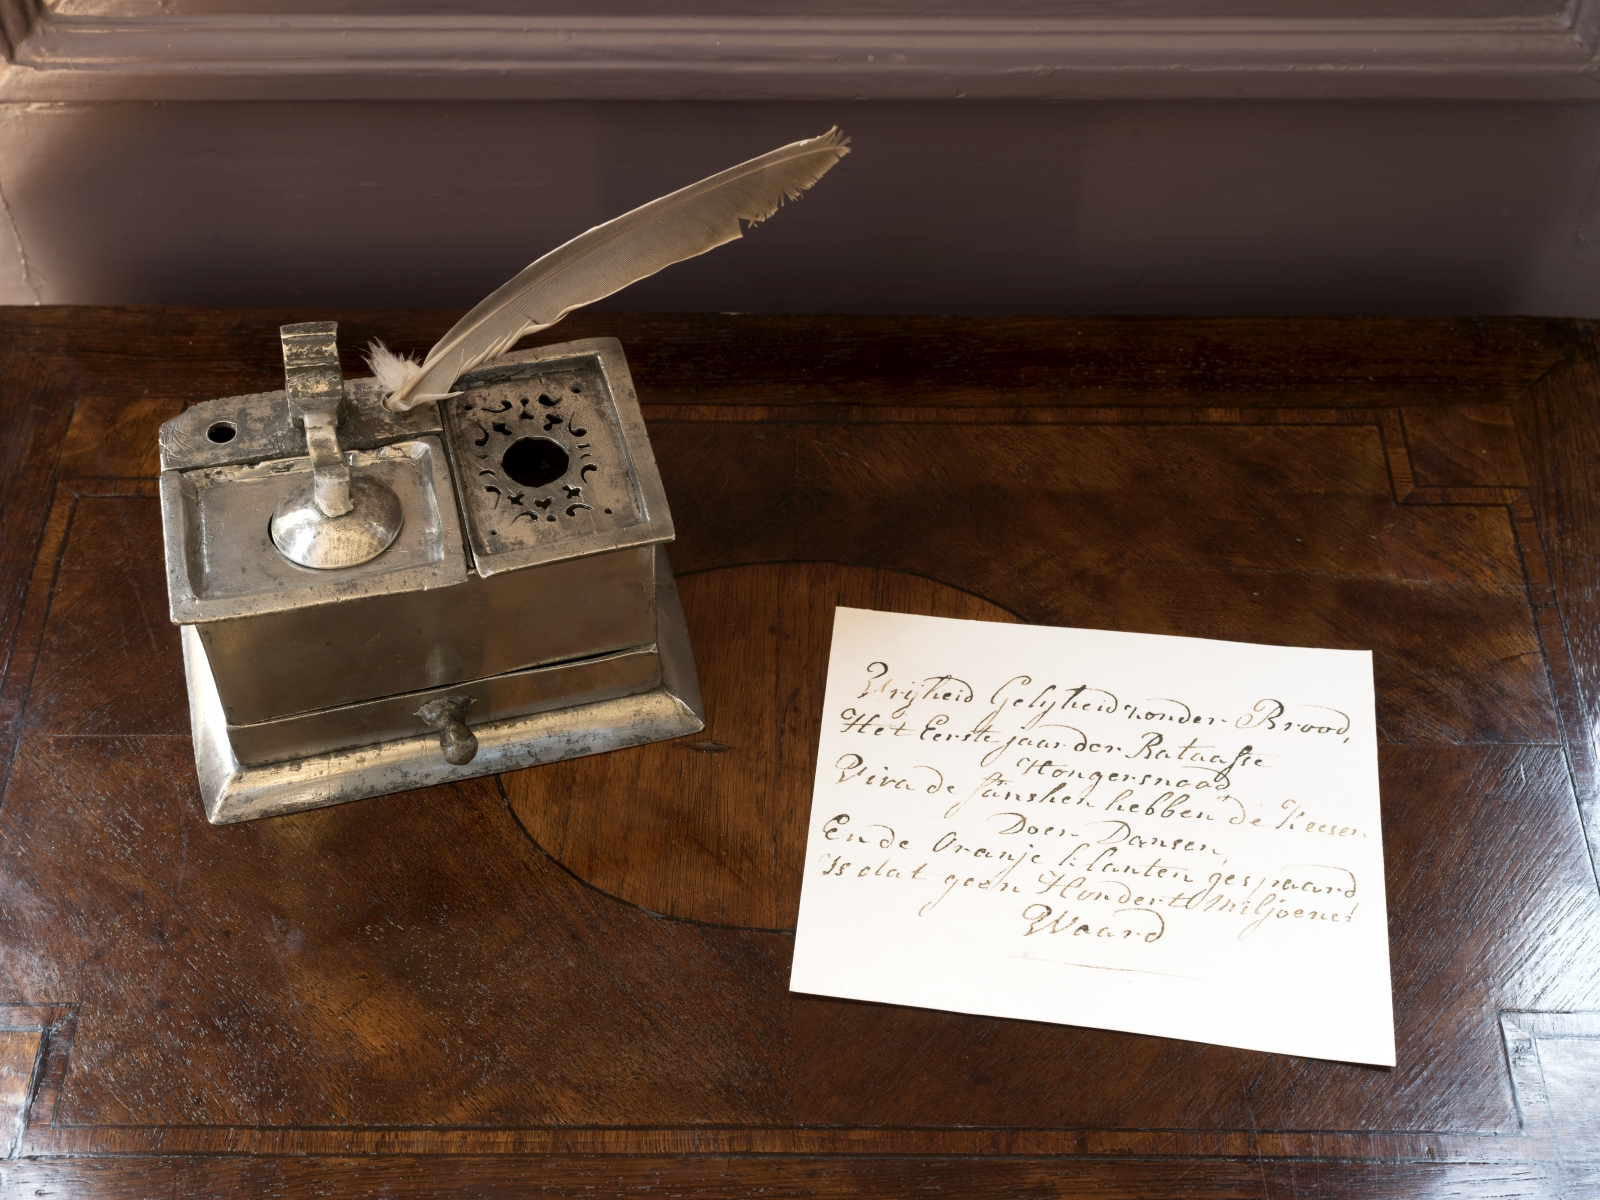 Vrijheid Gelijheid zonder Brood,
Het Eerste jaar der Bataafse
Hongersnood
Viva de fansken hebben de Keesen
Doen Dansen,
En de Oranje klanten gespaard
Is dat geen Hondert Miljoenen
Waard